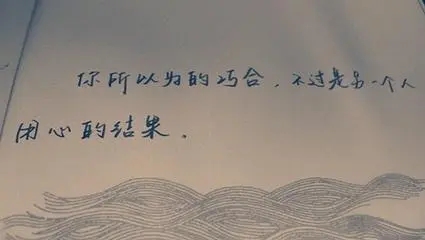 你所以为的巧合，不过是另一个人
用心的结果。